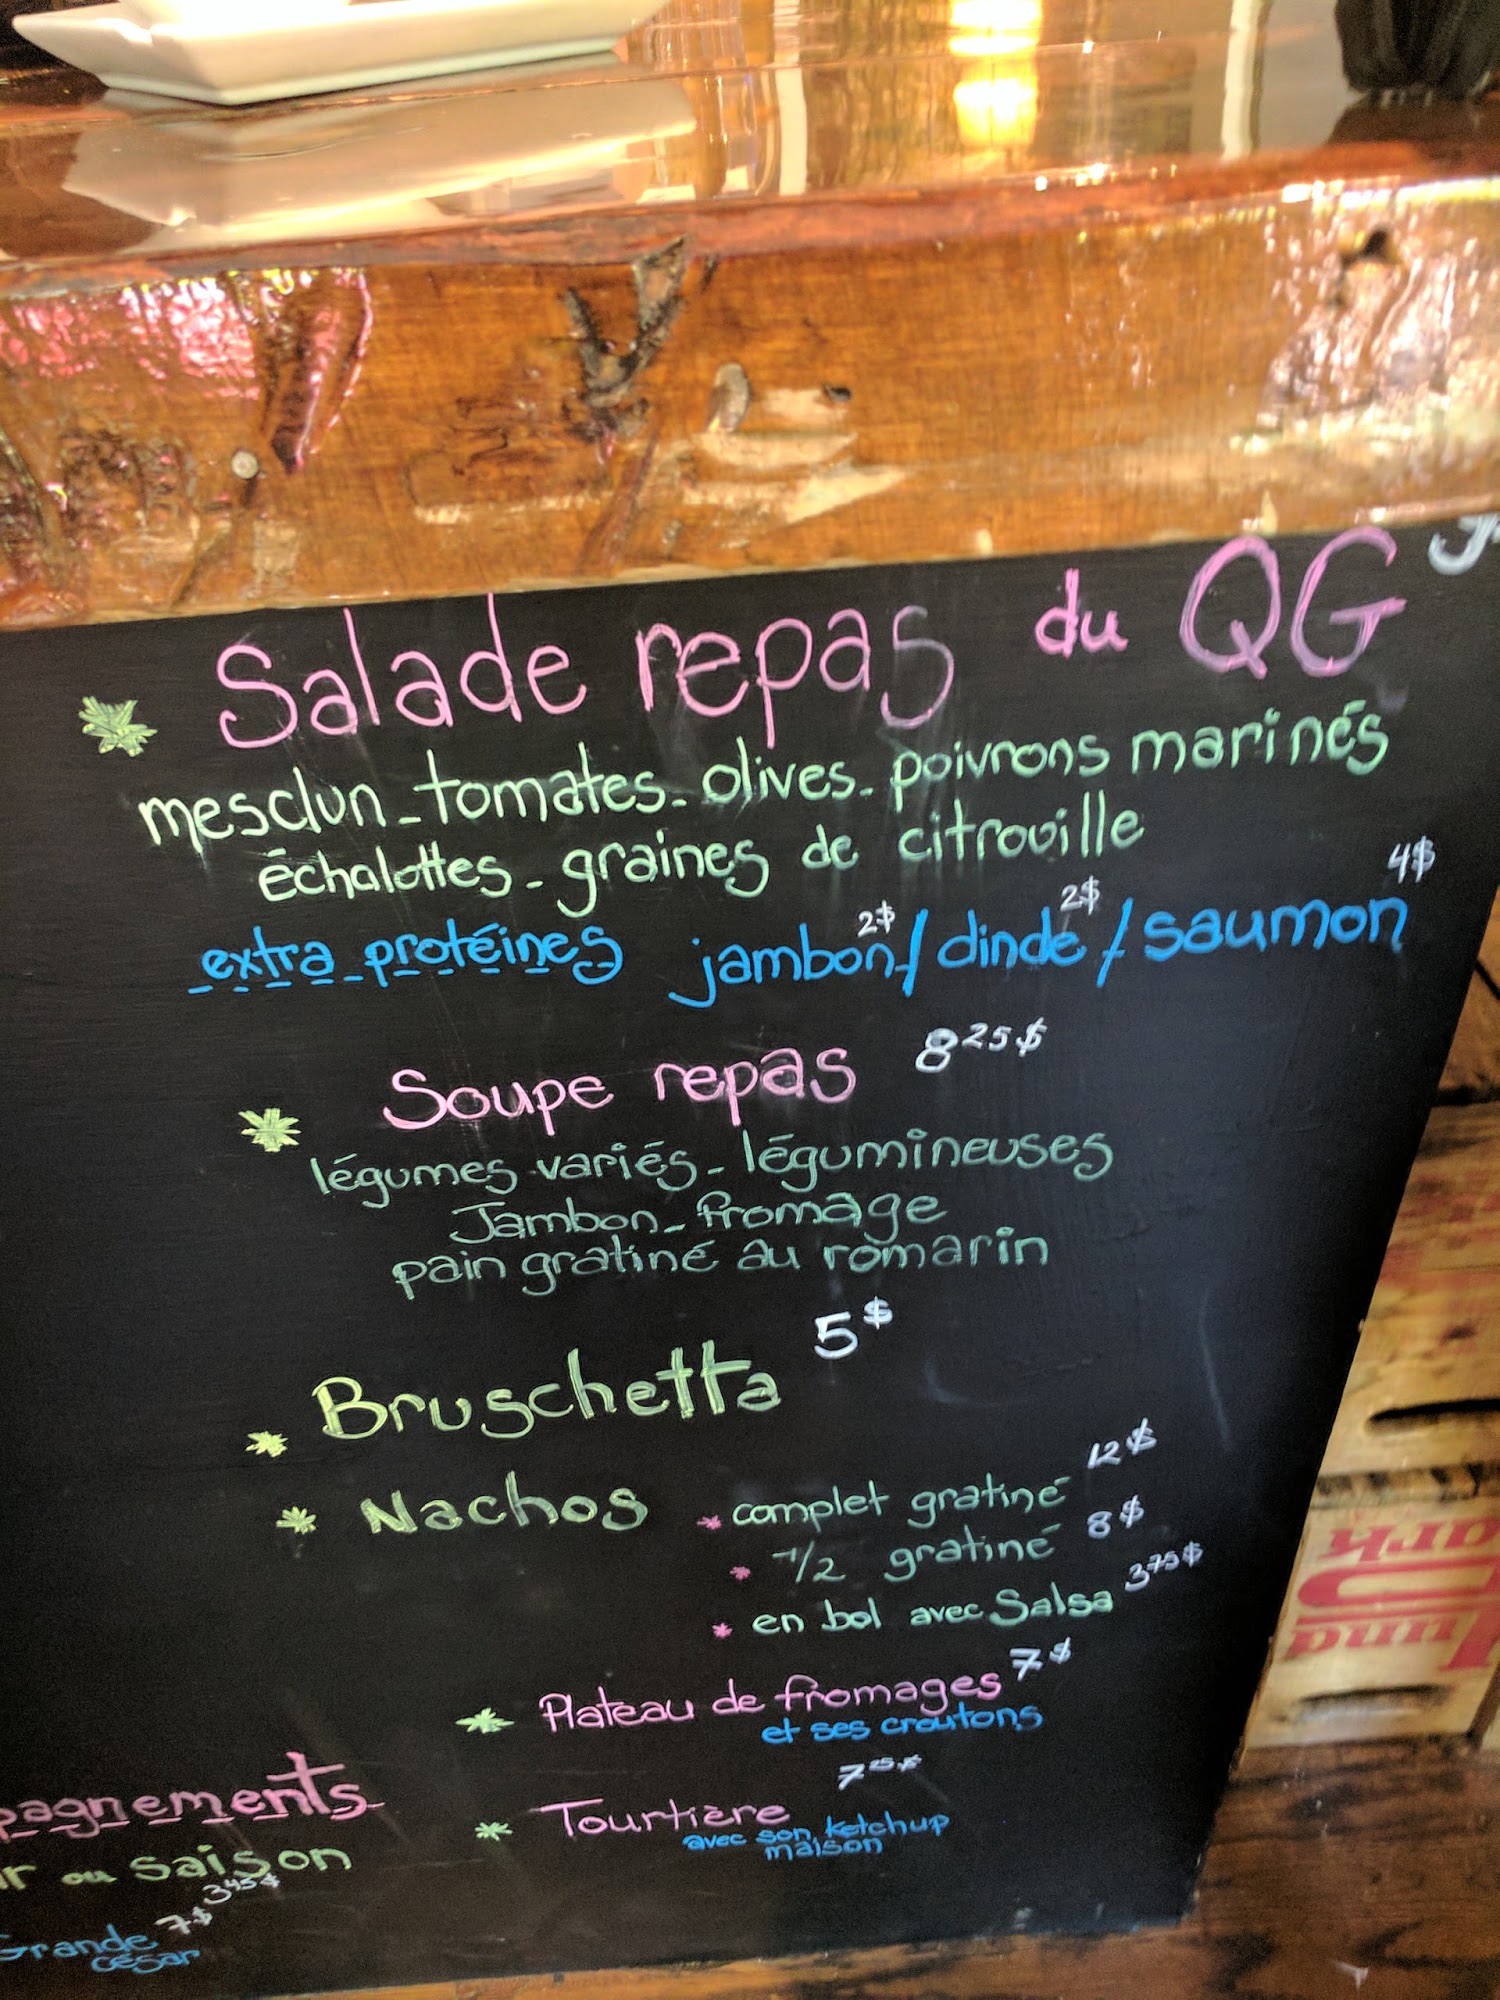 Salade repas du QG
mesclun - tomates - olives - poivrons marinés
échalottes - graines de citrouille
extra protéines jambon 2$ / dinde 2$ / saumon 4$
Soupe repas 8 25 $
légumes variés - légumineuses
Jambon - fromage
pain gratiné au romarin
Bruschetta 5$
Nachos * complet gratiné 12$
* 1/2 gratiné 8$
* en bol avec Salsa 3 75 $
Plateau de fromages 7$
et ses croutons
7 25 $
Tourtière
avec son ketchup
maison
pagnements
r ou saison
3 45 $
Grande 7$
césar
Park
Luna